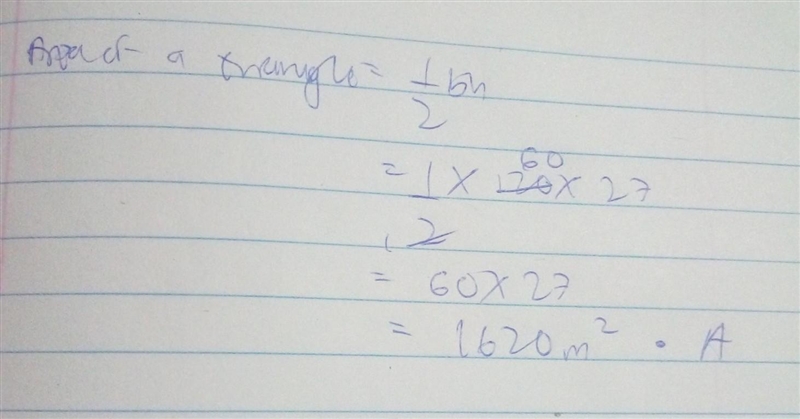 Area of a triangle = 1/2 bh
= 1/2 × 120 × 27
60
1
= 60 × 27
= 1620m² . A